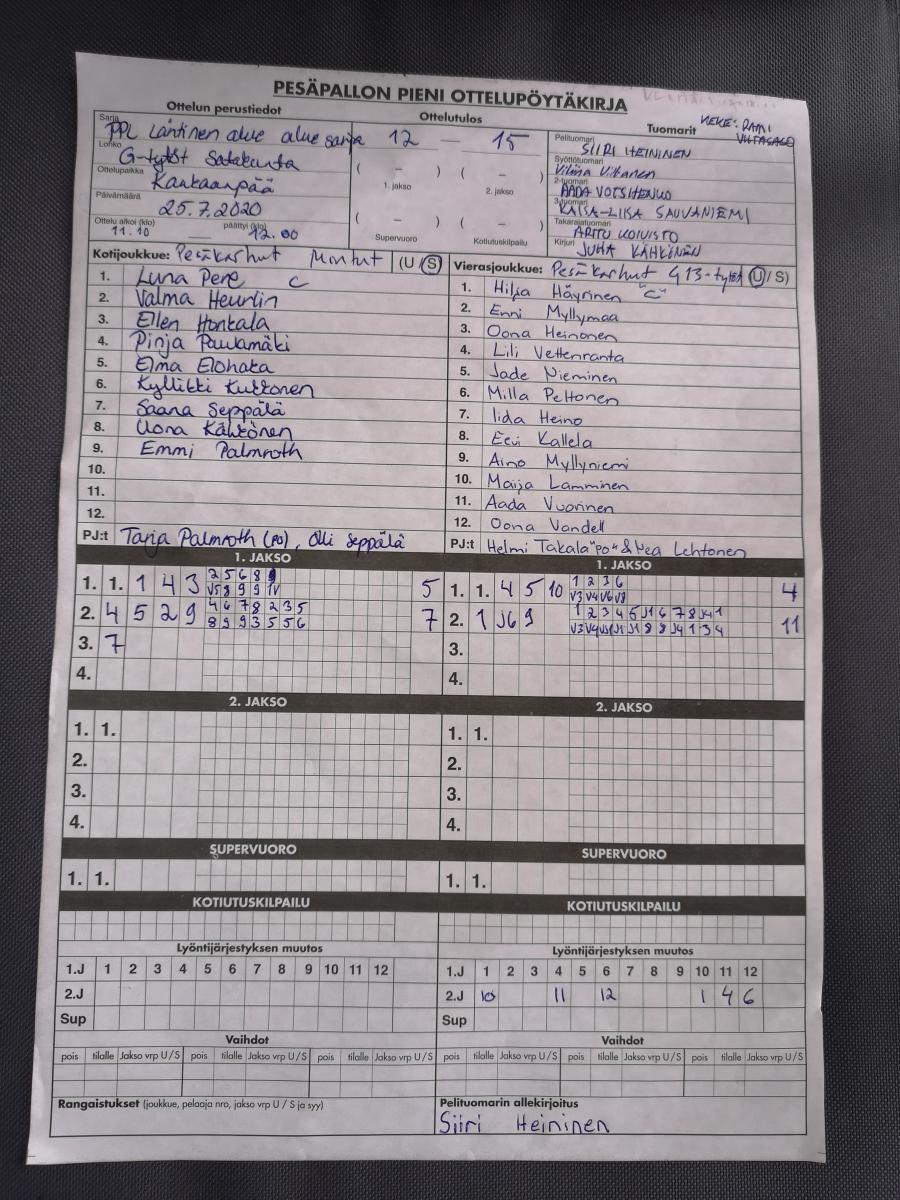 PESÄPALLON PIENI OTTELUPÖYTÄKIRJA
Ottelun perustiedot
Ottelutulos
Tuomarit
KEKE: RAMI
VIITASALO
Sarja PPL Läntinen alue alue sarja
Lohko G-tytöt Satakunta
Ottelupaikka Kankaanpää
Päivämäärä 25.7.2020
Ottelu alkoi (klo) 11.10 päättyi (klo) 12.00
12 — 15
( – ) ( – )
1. jakso 2. jakso
( – ) ( – )
Supervuoro Kotiutuskilpailu
Pelituomari SIIRI HEININEN
Syöttötuomari Vilma Viitanen
2-tuomari AADA
3-tuomari KAISA-LIISA SAUVANIEMI
Takarajatuomari ARTTU KOIVISTO
Kirjuri JUHA KÄHKÖNEN
Kotijoukkue: Pesäkarhut Mintut (U/S)
1. Luna Pere C
2. Valma Heurlin
3. Ellen Honkala
4. Pinja Paulamäki
5. Elma Elohaka
6. Kyllikki Kukkonen
7. Saana Seppälä
8. Uona Kähkönen
9. Emmi Palmroth
10.
11.
12.
PJ:t Tarja Palmroth (PO), Olli Seppälä
Vierasjoukkue: Pesäkarhut G13-tytöt (U/S)
1. Hilja Häyrinen "C"
2. Enni Myllymaa
3. Oona Heinonen
4. Lili Vettenranta
5. Jade Nieminen
6. Milla Peltonen
7. Iida Heino
8. Eevi Kallela
9. Aino Myllyniemi
10. Maija Lamminen
11. Aada Vuorinen
12. Oona Vandell
PJ:t Helmi Takala "po" & Nea Lehtonen
1. JAKSO
1. 1. 1 4 3 2 5 6 8 9 5
V5 8 9 9 1V
2. 4 5 2 9 4 6 7 8 2 3 5 7
8 9 9 3 5 5 6
3. 7
4.
1. JAKSO
1. 1. 4 5 10 1 2 3 6 4
V3 V4 V6 V8
2. 1 J6 9 1 2 3 4 5 J1 6 7 8 J4 1 11
V3 V4 V5 J1 J1 8 8 J4 1 3 4
3.
4.
2. JAKSO
1. 1.
2.
3.
4.
2. JAKSO
1. 1.
2.
3.
4.
SUPERVUORO
1. 1.
SUPERVUORO
1. 1.
KOTIUTUSKILPAILU
KOTIUTUSKILPAILU
Lyöntijärjestyksen muutos
1.J 1 2 3 4 5 6 7 8 9 10 11 12
2.J
Sup
Lyöntijärjestyksen muutos
1.J 1 2 3 4 5 6 7 8 9 10 11 12
2.J 10 11 12 1 4 6
Sup
Vaihdot
pois tilalle Jakso vrp U/S pois tilalle Jakso vrp U/S pois tilalle Jakso vrp U/S
Vaihdot
pois tilalle Jakso vrp U/S pois tilalle Jakso vrp U/S pois tilalle Jakso vrp U/S
Rangaistukset (joukkue, pelaaja nro, jakso vrp U / S ja syy)
Pelituomarin allekirjoitus
Siiri Heininen